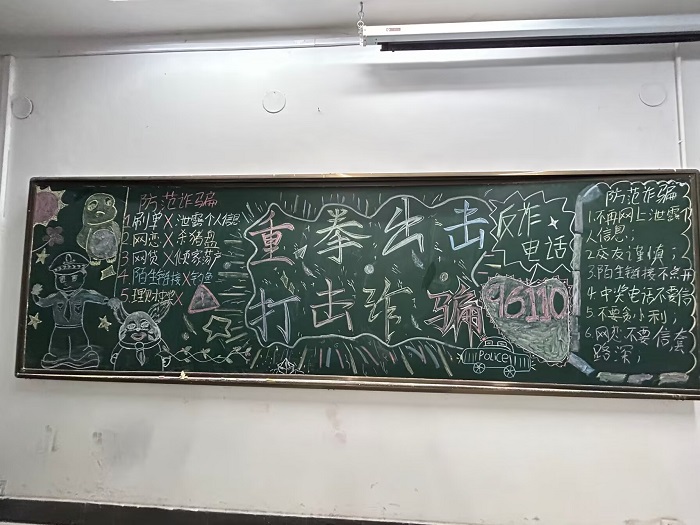 防范诈骗
1.刷单X泄露个人信息
2.网恋X杀猪盘
3.网贷X倾家荡产
4.陌生链接X钓鱼
5.理财
重拳出击
打击诈骗
反诈
电话
96110
POLICE
防范诈骗
1.不再网上泄露个
人信息;
2.交友谨慎;
3.陌生链接不要册
4.中奖电话不要信
5.不要贪小利,
6.网恋不要信套
路深;